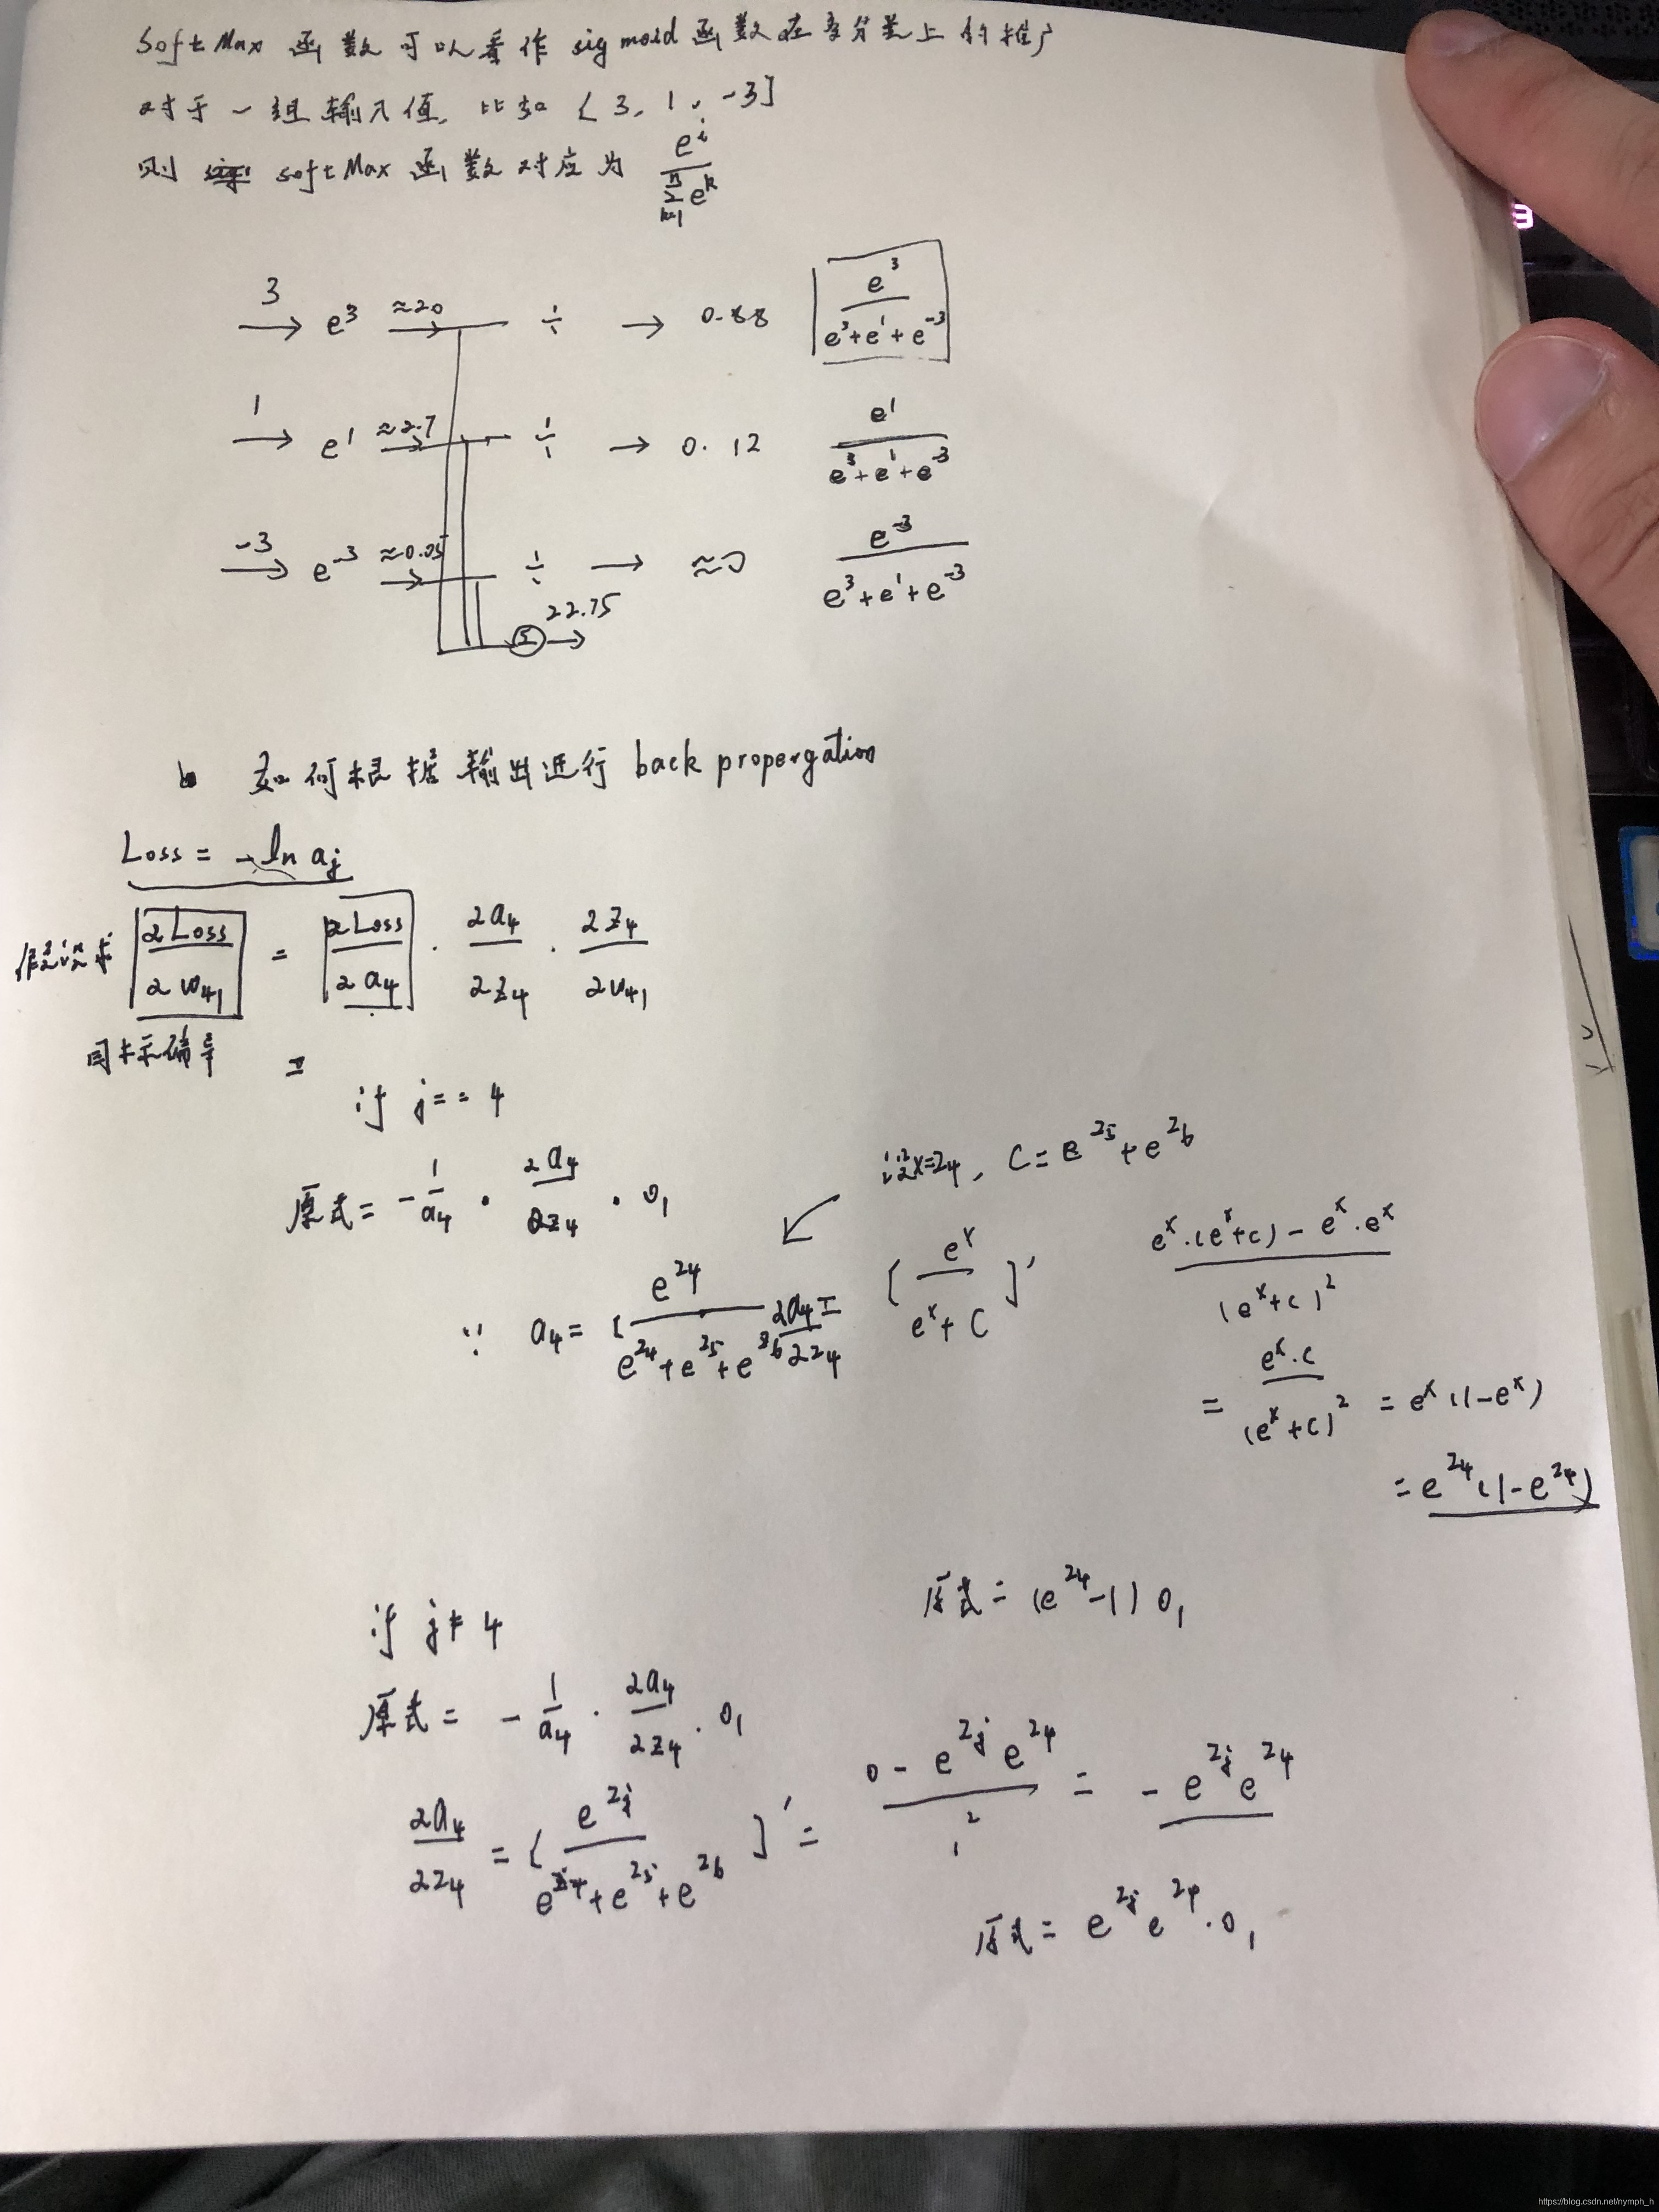 SoftMax 函数可以看作 sigmoid 函数在多分类上的推广
对于一组输入值, 比如 [3, 1, -3]
则 softMax 函数对应为 e^i / Σ_{k=1}^{n} e^k
3 → e^3 ≈20 → ÷ → 0.88 e^3 / (e^3+e^1+e^-3)
1 → e^1 ≈2.7 → ÷ → 0.12 e^1 / (e^3+e^1+e^-3)
-3 → e^-3 ≈0.05 → ÷ → ≈0 e^-3 / (e^3+e^1+e^-3)
Σ → 22.75
如何根据输出进行 back propergation
Loss = -ln aj
∂Loss/∂w41 = ∂Loss/∂a4 · ∂a4/∂z4 · ∂z4/∂w41
=
if j == 4
原式 = -1/a4 · ∂a4/∂z4 · o1
设x=z4, C = e^z5 + e^z6
∵ a4 = [ e^z4 / (e^z4+e^z5+e^z6) ∂a4/∂z4 = [ e^x / (e^x+C) ]' (e^x·(e^x+C) - e^x·e^x) / (e^x+C)^2
= e^x·C / (e^x+C)^2 = e^x(1-e^x)
= e^z4(1-e^z4)
原式 = (e^z4-1) o1
if j≠4
原式 = -1/a4 · ∂a4/∂z4 · o1
∂a4/∂z4 = [ e^zj / (e^z4+e^z5+e^z6) ]' = (0 - e^zj e^z4) / 1^2 = -e^zj e^z4
原式 = e^zj e^z4 · o1
https://blog.csdn.net/nymph_h